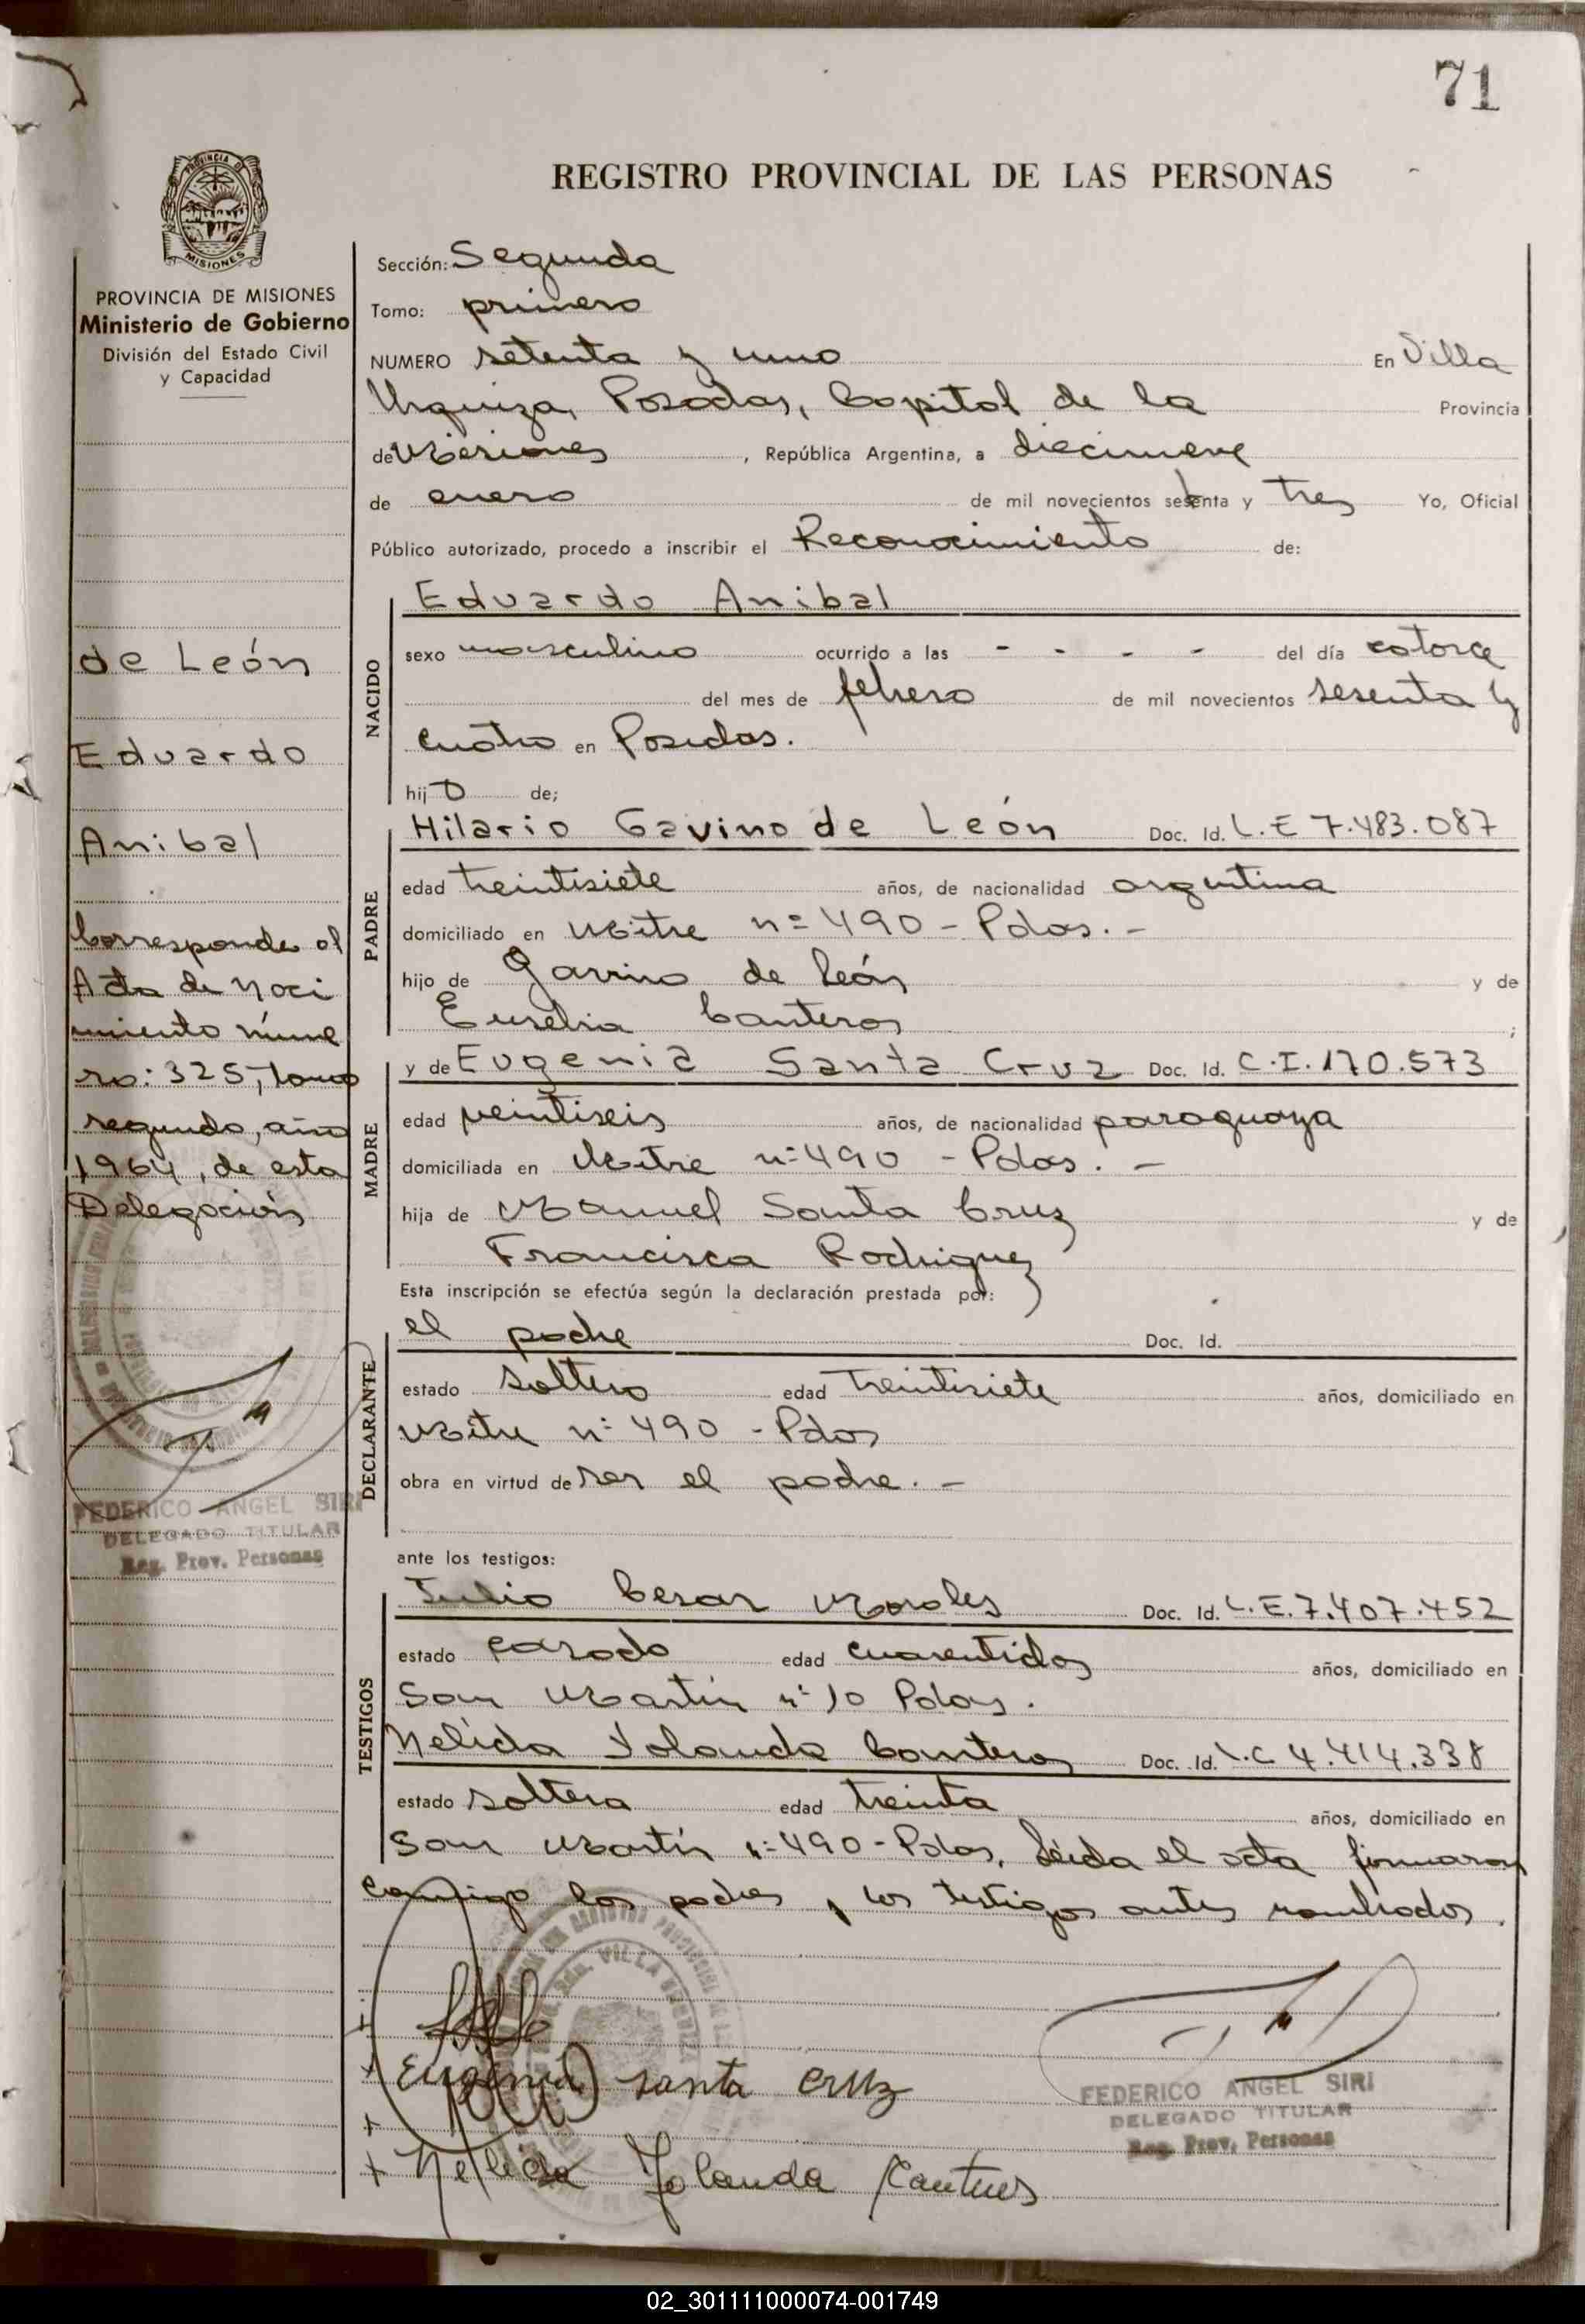 71
REGISTRO PROVINCIAL DE LAS PERSONAS
PROVINCIA DE MISIONES
MISIONES
PROVINCIA DE MISIONES
Ministerio de Gobierno
División del Estado Civil
y Capacidad
de León
Eduardo
Anibal
Corresponde al
Acta de Naci
miento núme
ro: 325, tomo
segundo, año
1964, de esta
Delegación
FEDERICO ANGEL SIRI
DELEGADO TITULAR
Reg. Prov. Personas
Sección: Segunda
Tomo: primero
NUMERO setenta y uno En Villa
Urquiza, Posadas, Capital de la Provincia
de Misiones, República Argentina, a diecinueve
de enero de mil novecientos setenta y tres Yo, Oficial
Público autorizado, procedo a inscribir el Reconocimiento de:
NACIDO
Eduardo Anibal
sexo masculino ocurrido a las - - - - del día catorce
del mes de febrero de mil novecientos sesenta y
cuatro en Posadas.
hijo de;
PADRE
Hilario Gavino de León Doc. Id. L.E 7.483.087
edad treintisiete años, de nacionalidad argentina
domiciliado en Mitre n= 490 - Pdas. -
hijo de Gavino de León y de
Eusebia Canteros ;
MADRE
y de Eugenia Santa Cruz Doc. Id. C.I. 170.573
edad veintiseis años, de nacionalidad paraguaya
domiciliada en Mitre n=490 - Pdas. -
hija de Manuel Santa Cruz y de
Francisca Rodriguez
Esta inscripción se efectúa según la declaración prestada por:
DECLARANTE
el padre Doc. Id.
estado soltero edad treintisiete años, domiciliado en
Mitre n: 490 - Pdas
obra en virtud de ser el padre. -
ante los testigos:
TESTIGOS
Julio Cesar Morales Doc. Id. L.E. 7.407.452
estado casado edad cuarentidos años, domiciliado en
San Martín n: 10 Pdas.
Nelida Yolanda Canteros Doc. Id. L.C 4.414.338
estado soltera edad treinta años, domiciliado en
San Martín n:490 - Pdas, Leída el acta firmaron
conmigo los padres, los testigos antes nombrados.
Eugenia santa cruz
FEDERICO ANGEL SIRI
DELEGADO TITULAR
Reg. Prov. Personas
Nelida Yolanda Canteros
02_301111000074-001749